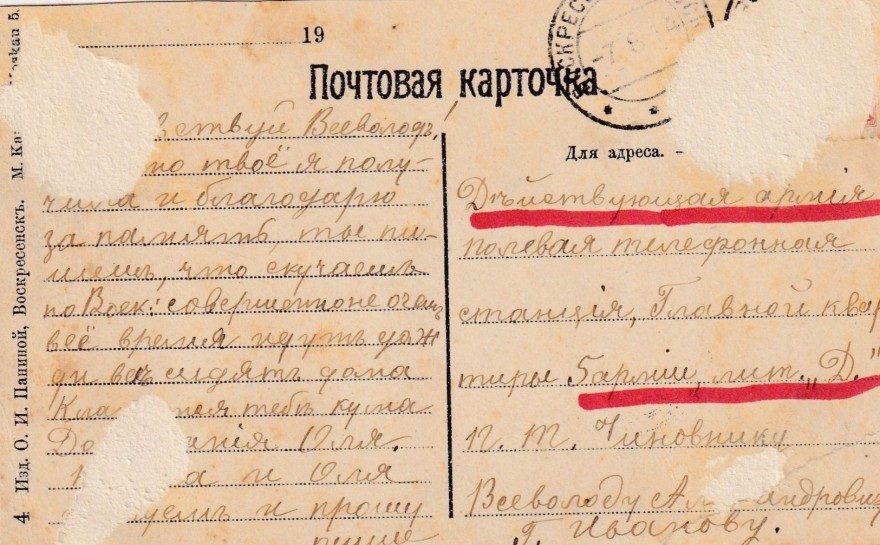 19
Почтовая карточка
Для адреса.
4 Изд. О. И. Паниной, Воскресенскъ. М. Ка
ствуй Всеволодъ!
твоё я полу-
чила и благодарю
за память, ты пи-
шешь, что скучаешь
по Воск: совершенно не очень
всё время идутъ дож
ди все сидятъ дома
тебѣ кума
До Оля.
и Оля
и прошу
Дѣйствующая армія
полевая телефонная
станція, Главной квар
тиры 5 арміи, лит. „Д."
П. Т. Чиновнику
Всеволоду Ал андрович
Г. Иванову.